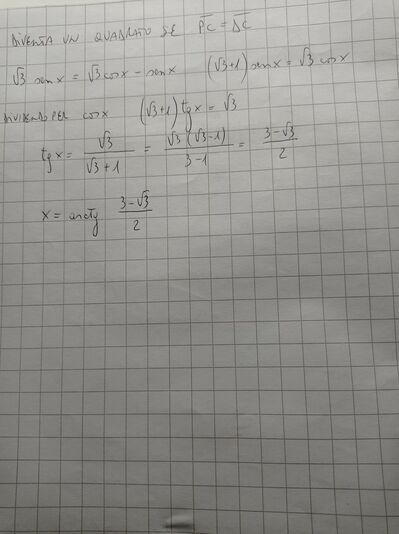 DIVENTA UN QUADRATO SE PC = DC
√3 sen x = √3 cos x - sen x (√3+1) sen x = √3 cos x
DIVIDENDO PER cos x (√3+1) tg x = √3
tg x = √3 / (√3+1) = √3 (√3-1) / (3-1) = (3-√3) / 2
x = arctg (3-√3) / 2